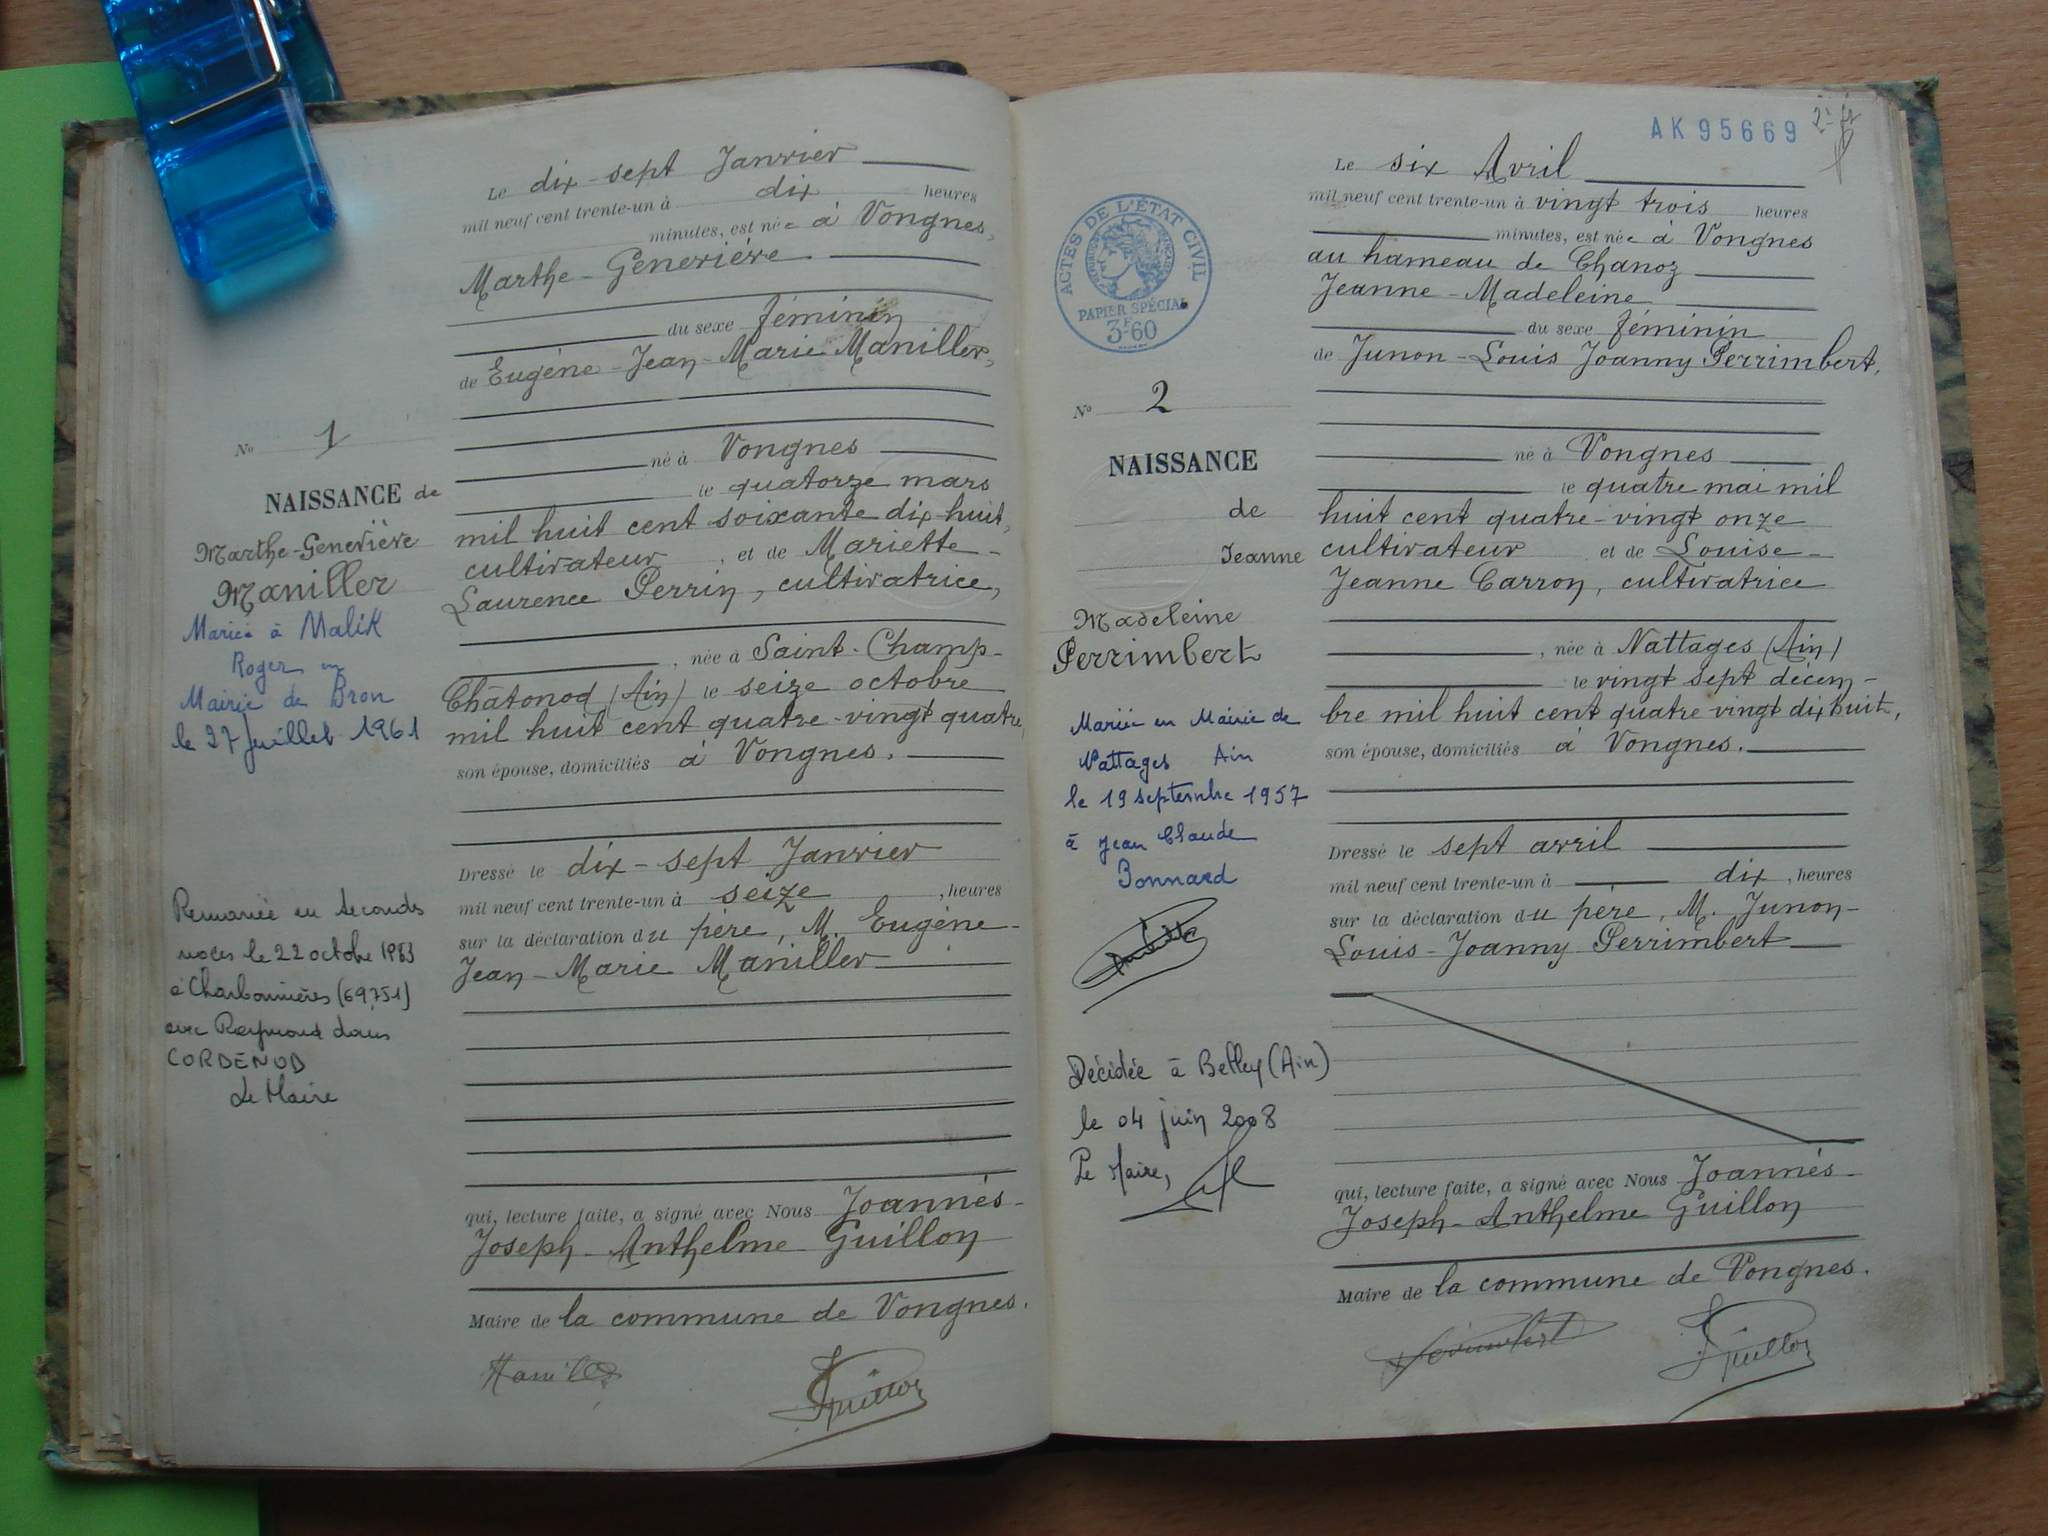 Le dix-sept Janvier
mil neuf cent trente-un à dix heures
minutes, est née à Vongnes,
Marthe-Geneviève
du sexe féminin
de Eugène-Jean-Marie Maniller,
né à Vongnes
le quatorze mars
mil huit cent soixante dix-huit,
cultivateur, et de Mariette-
Laurence Perrin, cultivatrice,
, née à Saint-Champ-
Châtonod (Ain) le seize octobre
mil huit cent quatre-vingt quatre,
son épouse, domiciliés à Vongnes.
Dressé le dix-sept Janvier
mil neuf cent trente-un à seize, heures
sur la déclaration du père, M. Eugène-
Jean-Marie Maniller
qui, lecture faite, a signé avec Nous Joannès-
Joseph-Anthelme Guillon
Maire de la commune de Vongnes.
Guillon
No 1
NAISSANCE de
Marthe-Geneviève
Maniller
Mariée à Malik
Roger en
Mairie de Bron
le 27 Juillet 1961
Remariée en secondes
noces le 22 octobre 1983
à Charbonnières (69751)
avec Raymond Louis
CORDENOD
Le Maire
AK 95669
ACTES DE L'ÉTAT CIVIL
RÉPUBLIQUE FRANÇAISE
PAPIER SPÉCIAL
3F60
No 2
NAISSANCE
de
Jeanne
Madeleine
Perrimbert
Mariée en Mairie de
Nattages Ain
le 19 septembre 1957
à Jean Claude
Bonnard
Décidée à Belley (Ain)
le 04 juin 2008
Le Maire,
Le six Avril
mil neuf cent trente-un à vingt trois heures
minutes, est née à Vongnes
au hameau de Chanoz
Jeanne-Madeleine
du sexe féminin
de Junon-Louis Joanny Perrimbert,
né à Vongnes
le quatre mai mil
huit cent quatre-vingt onze
cultivateur et de Louise-
Jeanne Carron, cultivatrice
, née à Nattages (Ain)
le vingt sept décem-
bre mil huit cent quatre vingt dix huit,
son épouse, domiciliés à Vongnes.
Dressé le sept avril
mil neuf cent trente-un à dix, heures
sur la déclaration du père, M. Junon-
Louis-Joanny Perrimbert
qui, lecture faite, a signé avec Nous Joannès-
Joseph-Anthelme Guillon
Maire de la commune de Vongnes.
Perrimbert
Guillon